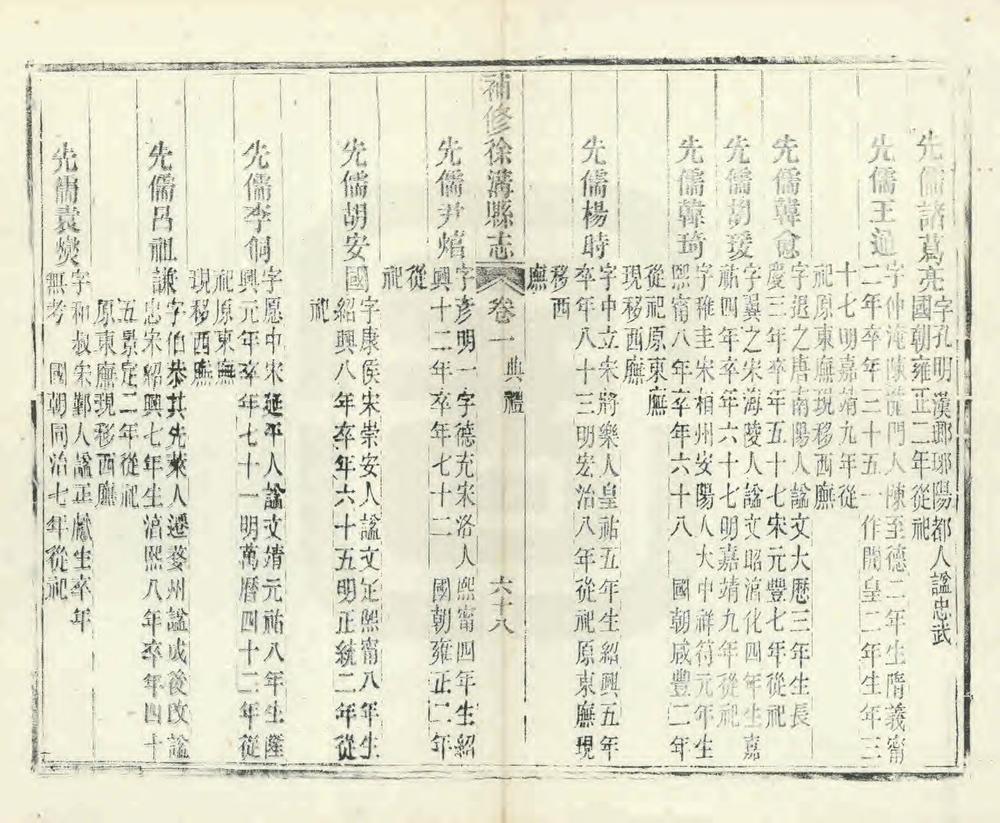 先儒諸葛亮字孔明漢瑯琊陽都人諡忠武
國朝雍正二年從祀
先儒王通字仲淹陳龍門人陳至德二年生隋義甯
二年卒年二十五一作開皇二年生年三
十七明嘉靖九年從
祀原東廡現移西廡
先儒韓愈字退之唐南陽人諡文大歷三年生長
慶三年卒年五十七宋元豐七年從祀
先儒胡瑗字翼之宋海陵人諡文昭淯化四年生嘉
祐四年卒年六十七明嘉靖九年從祀
先儒韓琦字稚圭宋相州安陽人大中祥符元年生
熙甯八年卒年六十八 國朝咸豐二年
從祀原東廡
現移西廡
先儒楊時字中立宋將樂人皇祐五年生紹興五年
卒年八十三明宏治八年從祀原東廡現
移西
廡
補修徐溝縣志 卷一 典禮 六十八
先儒尹焞字彥明一字德充宋洛人熙甯四年生紹
興十二年卒年七十二 國朝雍正二年
從
祀
先儒胡安國字康侯宋崇安人諡文定熙甯八年生
紹興八年卒年六十五明正統二年從
祀
先儒李侗字愿中宋延平人諡文靖元祐八年生隆
興元年卒年七十一明萬曆四十二年從
祀原東廡
現移西廡
先儒呂祖謙字伯恭其先萊人遷婺州諡成後改諡
忠宋紹興七年生淯熙八年卒年四十
五景定二年從祀
原東廡現移西廡
先儒袁燮字和叔宋鄞人諡正獻生卒年
無考 國朝同治七年從祀